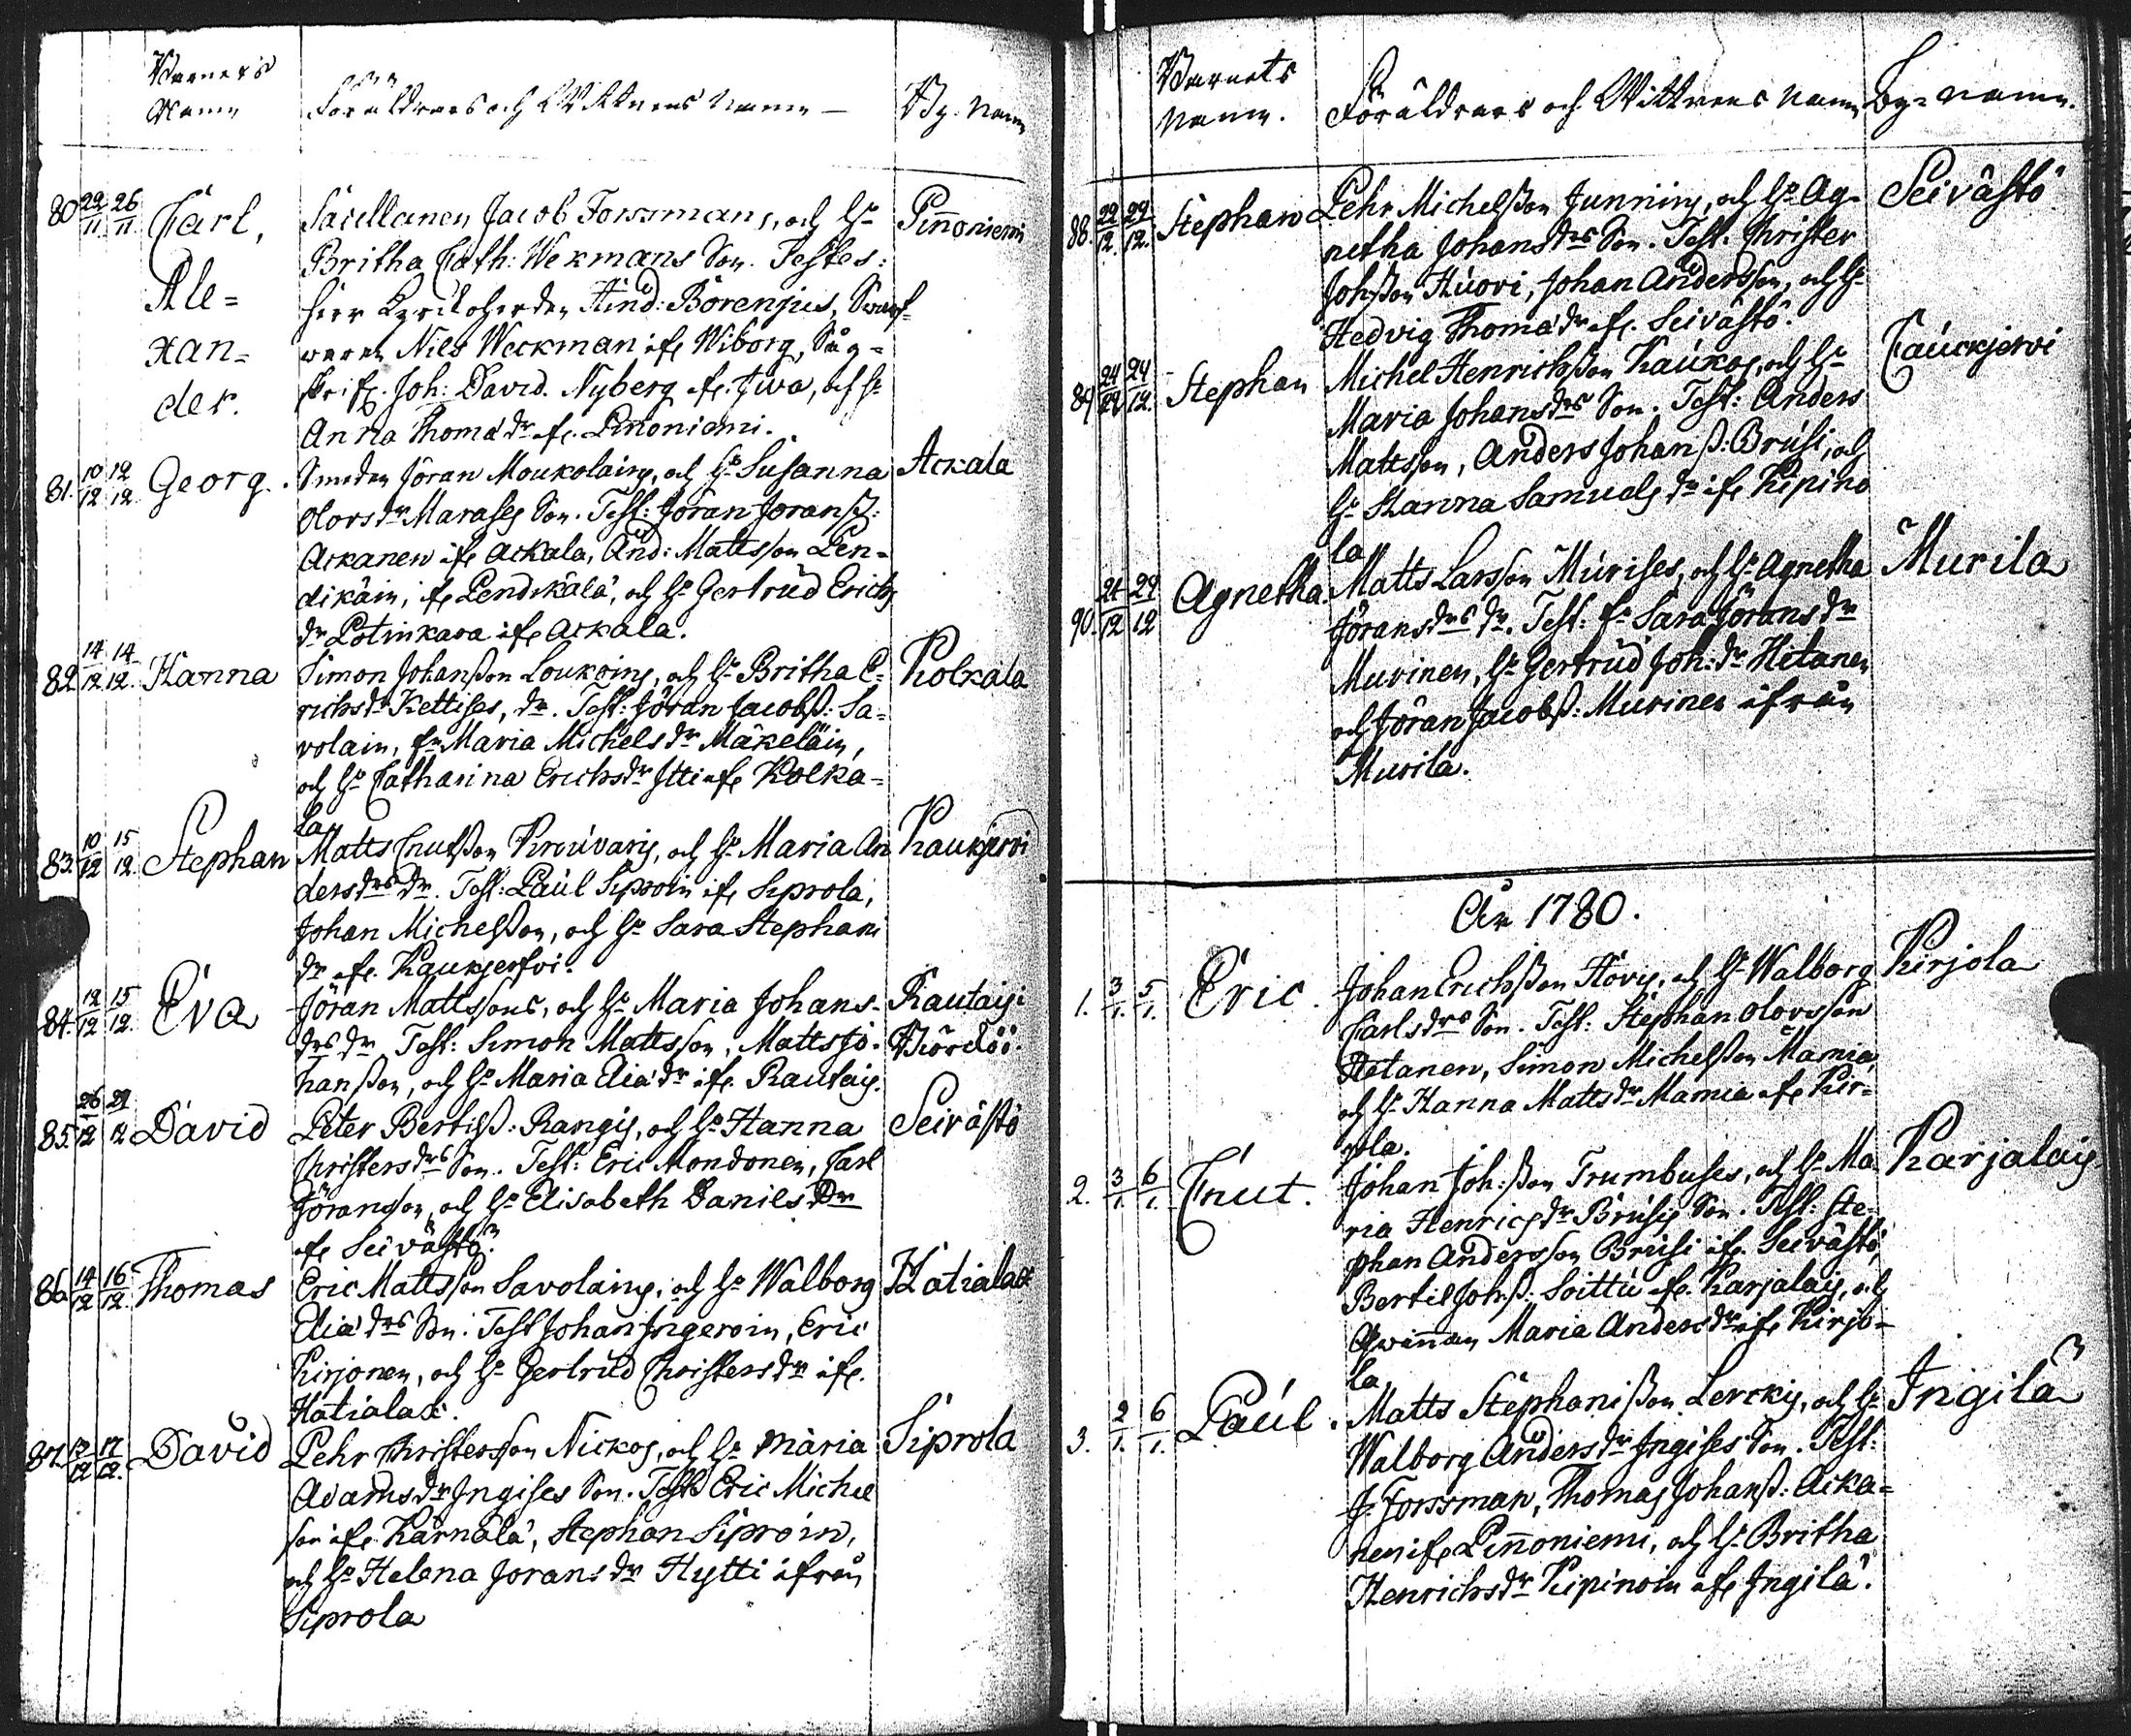 Barnets
Namn
Föräldrars och Wittnens namn —
By-Namn
80 22/11 26/11 Carl, Sacellanen Jacob Forssmans, och H:o Pinnoniemi
Britha Cath: Wekmans Son. Testes:
Ale= Herr Kyrkoherden Hind: Borenius,
xan= Nils Weckman ifr Wiborg,
der. Joh: David. Nyberg ifr. och H:o
Anna Thomæ dr ifr. Pinoniemi.
81. 10/12 12/12 Georg. Smeden Jöran Moukolains, och H:o Susanna Ackala
Olovsdr Marases Son. Test: Jöran Joranss:
Ackanen ifr Ackala, And: Mattsson Len=
dikäin, ifr Lendikälä, och H:o Gertrud Erichs
dr Potinkara ifr Ackala.
82. 14/12 14/12 Hanna Simon Johansson Loukoins, och H:o Britha E= Kolkala
richsdr Kettises, dr. Test: Jöran Jacobss: Sa=
volain, Maria Michelsdr Mäkeläin,
och H:o Catharina Erichsdr Itti ifr Kolka=
la
83. 10/12 15/12 Stephan Matts Cnutsson Krouvaris, och H:o Maria An Kaukjervi
dersdrs dr. Test: Paul Siproin ifr Siprola,
Johan Michelsson, och H:o Sara Stephani
dr ifr. Kaukjerfvi.
84. 12/12 15/12 Eva Jöran Mattssons, och H:o Maria Johans= Rautais
drs dr Test: Simon Mattsson, Matts Jo= Biördöö.
hansson, och H:o Maria Eliæ dr ifr. Rautais.
85. 26/12 29/12 David Peter Bertilss: Rangis, och H:o Hanna Seivästö
Christersdrs Son. Test: Eric Mondonen, Carl
Göransson, och H:o Elisabeth Daniels Dr
ifr Seivästö.
86. 14/12 16/12 Thomas Eric Mattsson Savolains, och H:o Walborg Hatialax
Eliæ drs Son. Test Johan Ingeroin, Eric
Kirjonen, och H:o Gertrud Christersdr ifr.
Hatialax.
87. 13/12 17/12 David Pehr Christersson Nickos, och H:o Maria Siprola
Adamsdr Ingises Son. Test Eric Michel
son ifr. Kärnälä, Stephan Siproin,
och H:o Helena Joransdr Hytti ifrån
Siprola
Barnets
namn.
Föräldrars och Wittnens namn
By=namn.
88. 22/12 24/12 Stephan Pehr Michelsson Junnins, och H:o Ag= Seivästö
netha Johansdrs Son. Test. Christer
Johsson Huovi, Johan Andersson, och H:o
Hedvig Thomæ dr ifr. Seivästö.
89 24/12 24/12 Stephan Michel Henrichsson Kaukos, och H:o Cauckjervi
Maria Johansdrs Son. Test: Anders
Mattsson, Anders Johanss: Brusi, och
H:o Hanna Samuels dr ifr Kipino
la
90. 24/12 24/12 Agnetha. Matts Larsson Murises, och H:o Agnetha Murila
Jöransdrs dr. Test: Sara Jörans dr
Murinen, H:o Gertrud Joh: dr Hitanen
och Jöran Jacobss: Murinen ifrån
Murila.
År 1780.
1. 3/1. 5/1. Eric. Johan Erichsson Hovis, och H:o Walborg Kirjola
Carlsdrs Son. Test: Stephan Olovsson
Hetanen, Simon Michelsson Mamia,
och H:o Hanna Mattsdr Mamia ifr Kir=
jola.
2. 3/1. 6/1. Cnut. Johan Joh:sson Trumbuses, och H:o Ma Karjalais
ria Henricsdr Brusis Son. Test: Ste=
phan Andersson Brusi ifr. Seivästö,
Bertil Joh:ss: Soittu ifr. Karjalais, och
Qvinnan Maria Andersdr ifr Kirjo=
la,
3. 2/1. 6/1. Paul. Matts Stephanisson Lerckis, och H:o Ingilä
Walborg Andersdr Ingises Son. Test:
J: Forssman, Thomas Johanss: Acka=
nen ifr Pinnoniemi, och H:o Britha
Henrichsdr Kipinoin ifr Ingilä.